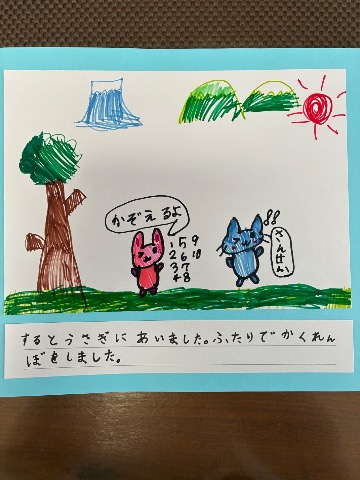 かぞえるよ
1 5 9
2 6 10
3 7
4 8
さんせん
するとうさぎに あいました。ふたりで かくれん
ぼをしました。